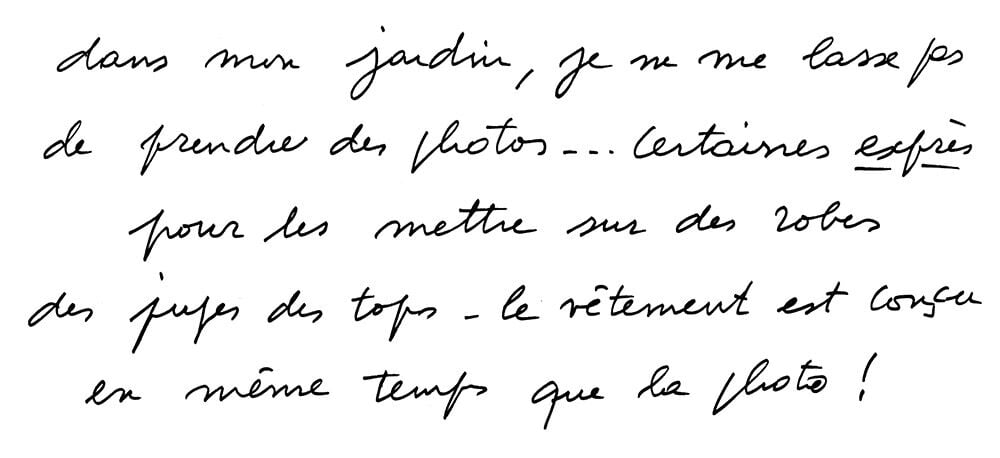 dans mon jardin, je ne me lasse pas
de prendre des photos... certaines exprès
pour les mettre sur des robes
des jupes des tops - le vêtement est conçu
en même temps que la photo !